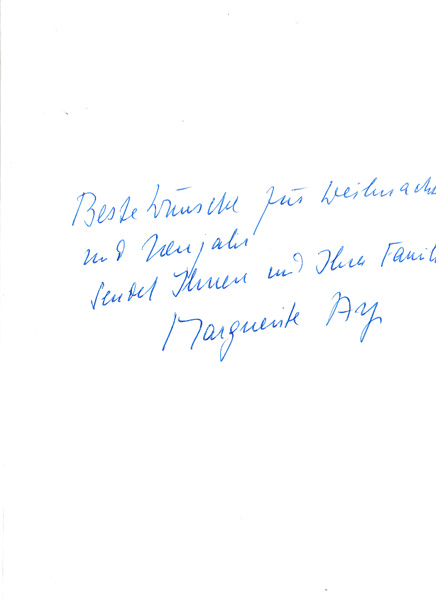 Beste Wünsche für Weihnache
und Neujahr
sendet Ihnen und Ihrer Famili
Marguerite Arp